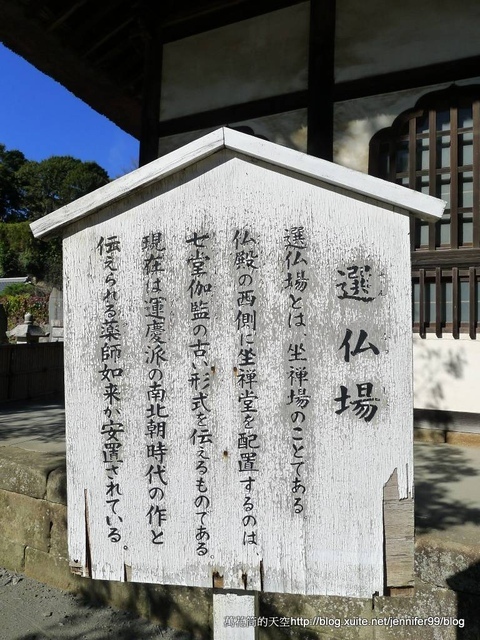 選仏場
選仏場とは 坐禅場のことである
仏殿の西側に坐禅堂を配置するのは
七堂伽藍の古い形式を伝えるものである。
現在は運慶派の南北朝時代の作と
伝えられる薬師如来が安置されている。
萬花筒的天空http://blog.xuite.net/jennifer99/blog